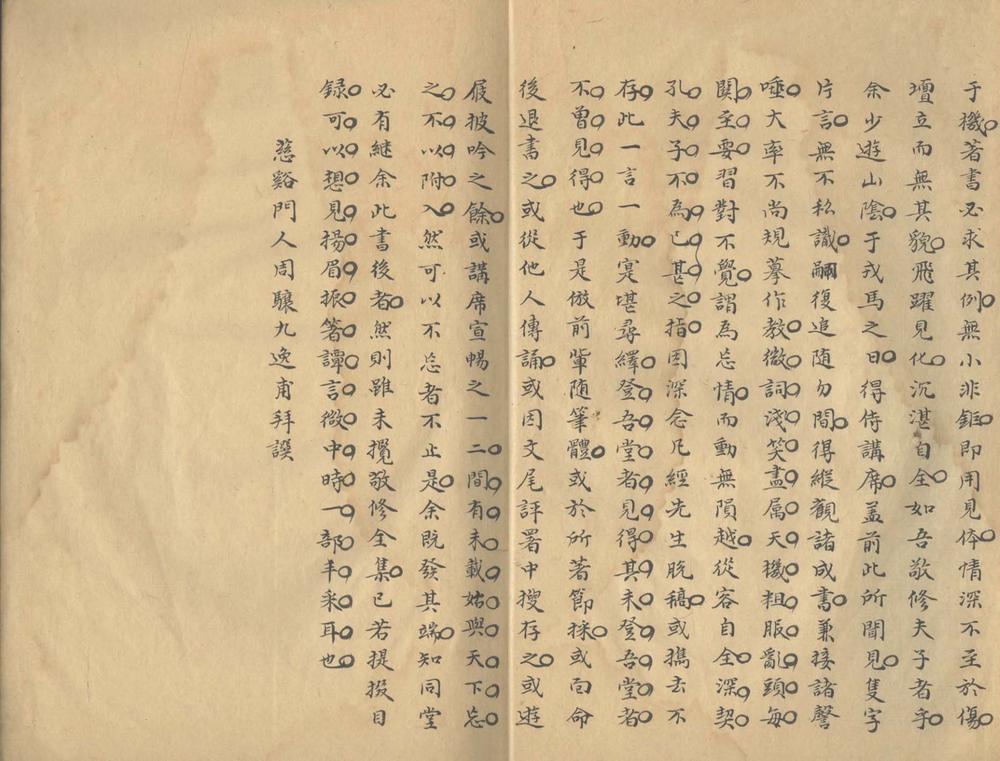 于機著書必求其例無小非鉅即用見体情深不至於傷
壇立而無其貌飛躍見化沉湛自全如吾敬修夫子者乎
余少遊山陰于戎馬之日得侍講席盖前此所聞見隻字
片言無不私識嗣復追随勿間得縱觀諸成書兼接諸謦
唾大率不尚規摹作教微詞淺笑盡属天機粗服亂頭每
關至要習對不覺謂為忘情而動無隕越從容自全深契
孔夫子不為已甚之指因深念凡經先生脱稿或携去不
存此一言一動寔堪尋繹登吾堂者見得其未登吾堂者
不曽見得也于是倣前輩随筆體或於所著節採或向命
後退書之或從他人傳誦或因文尾評署中搜存之或遊
屐披吟之餘或講席宣暢之一二間有未載姑與天下忘
之不以附入然可以不忘者不止是余既發其端知同堂
必有継余此書後者然則雖未攬敬修全集已若提掇目
録可以想見揚眉振箸譚言微中時一部半釆耳也
慈谿門人周驤九逸甫拜譔